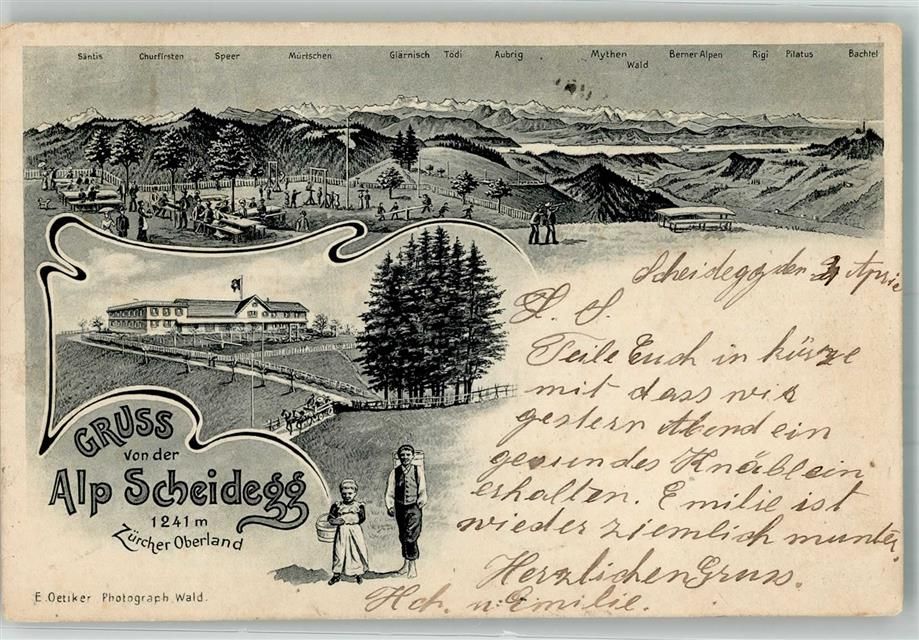 Säntis Churfirsten Speer Mürtschen Glärnisch Tödi Aubrig Mythen Berner Alpen Rigi Pilatus Bachtel
Wald
GRUSS
von der
Alp Scheidegg
1241 m
Zürcher Oberland
E. Oetiker Photograph Wald.
Scheidegg den April
Teile Euch in kürze
mit dass wir
gestern Abend ein
gesundes Knäblein
erhalten. Emilie ist
wieder ziemlich munter.
Herzlichen Gruss.
Hch. u. Emilie.